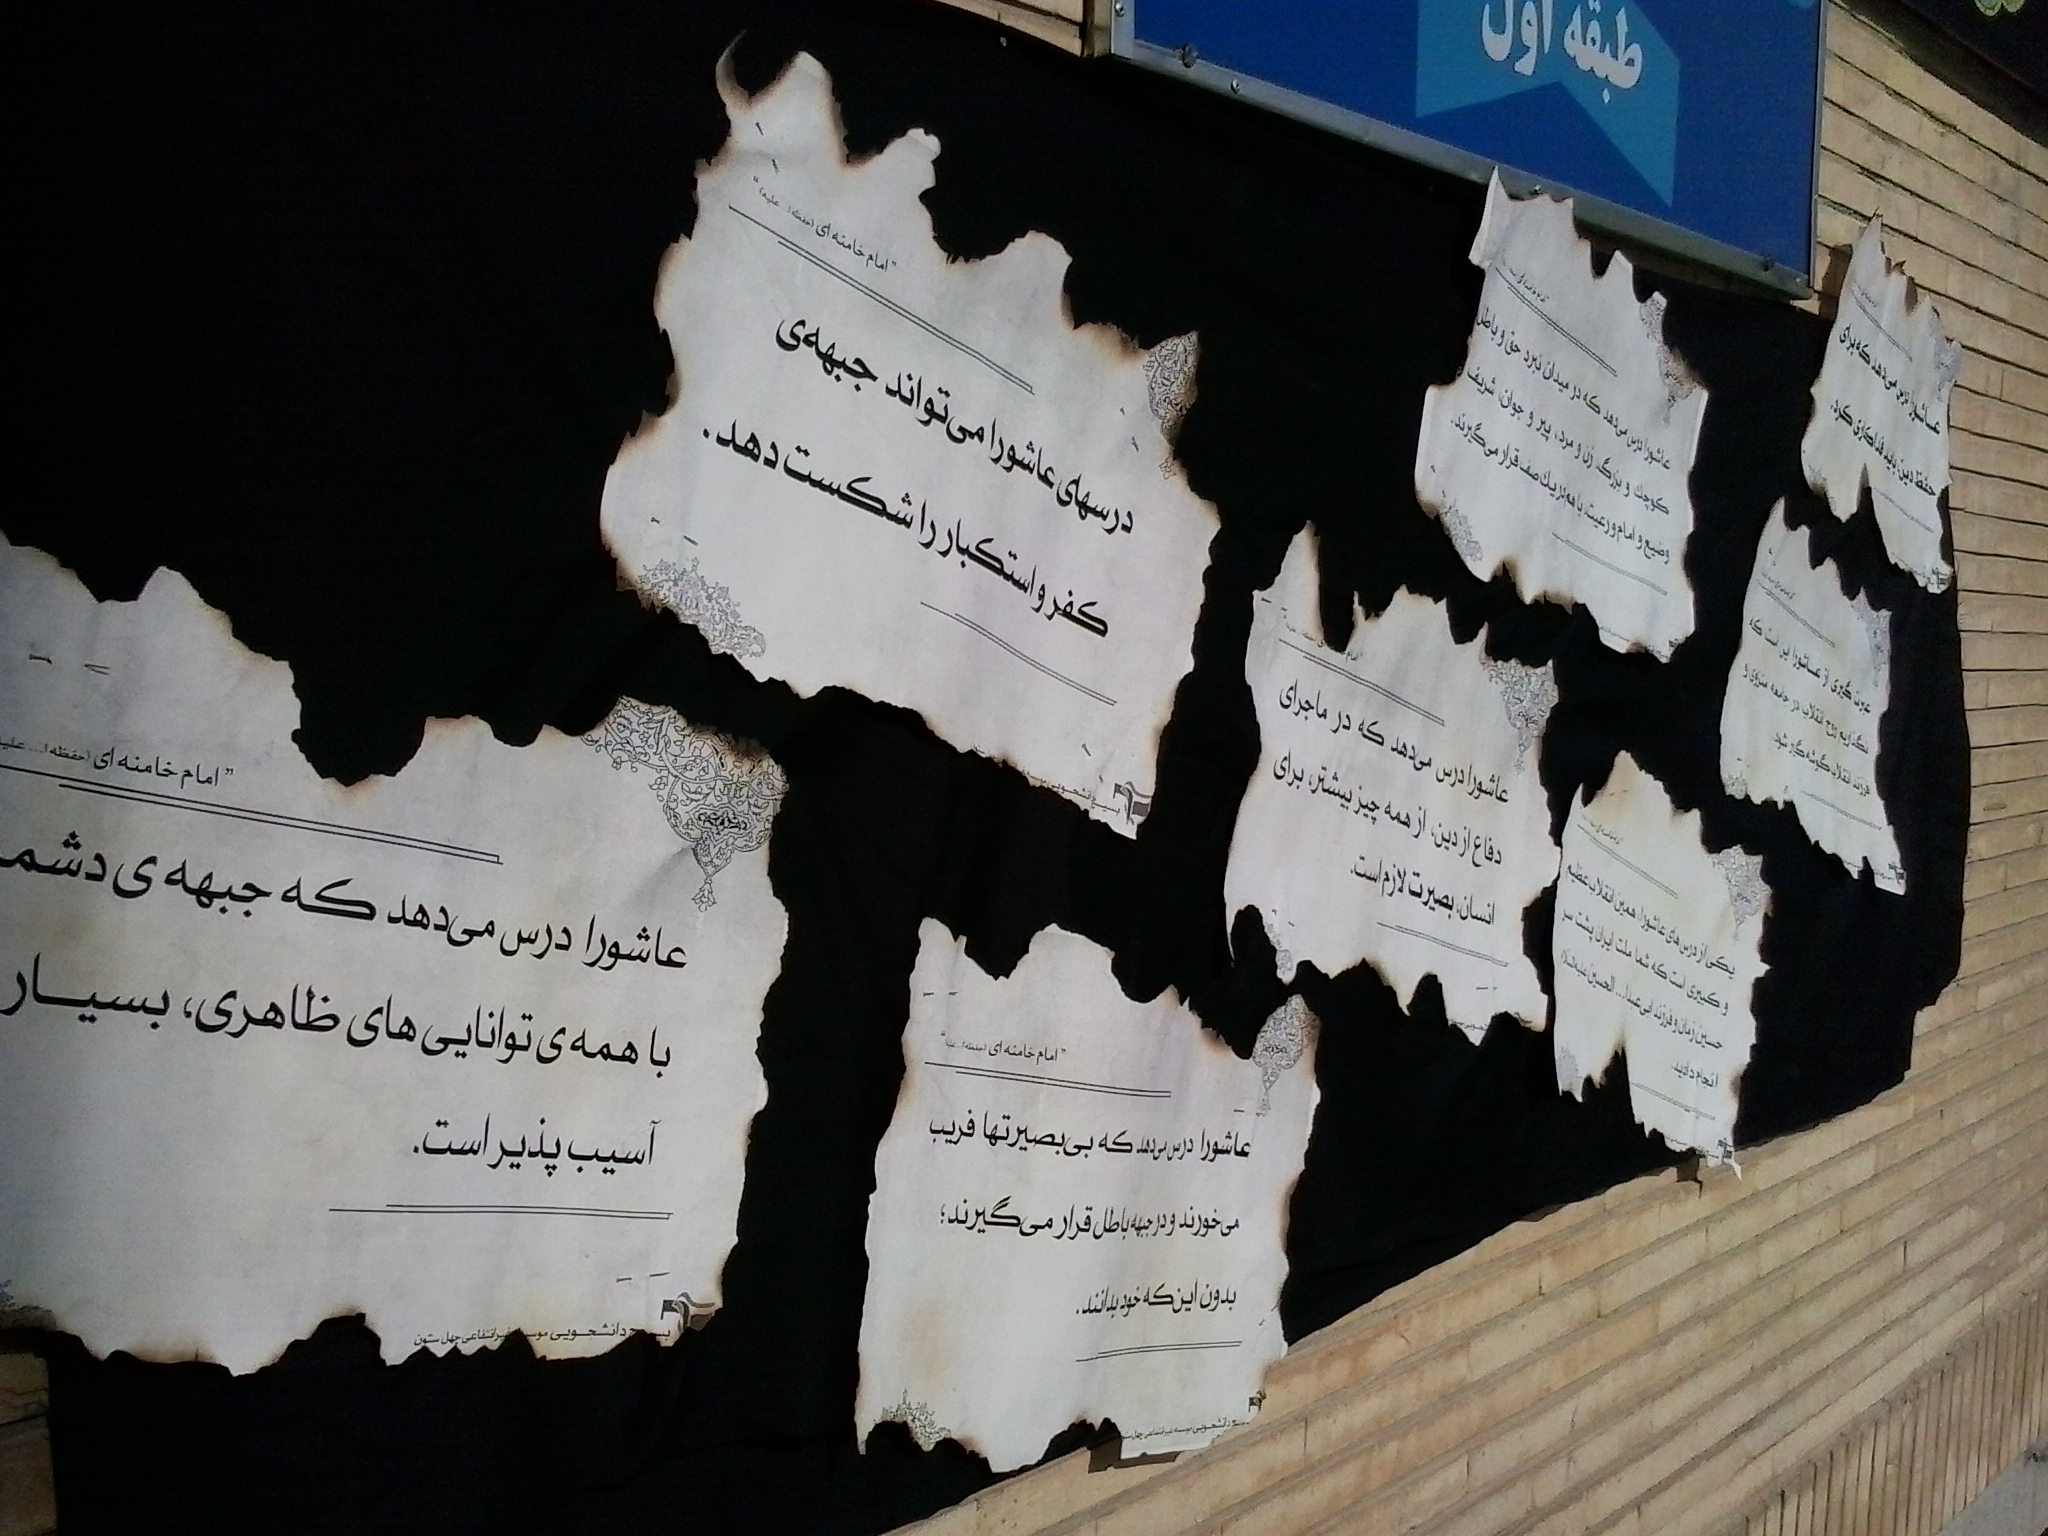 طبقه اول
" امام خامنه ای (حفظه ا... علیه) "
درسهای عاشورا می‌تواند جبهه‌ی
کفر و استکبار را شکست دهد.
بسیج دانشجویی
عاشورا درس می‌دهد که در میدان نبرد حق و باطل
کوچک و بزرگ، زن و مرد، پیر و جوان، شریف
وضیع و امام و رعیت، با هم در یک صف قرار می‌گیرند.
عاشورا درس می‌دهد که برای
حفظ دین، باید فداکاری کرد.
عبرت گیری از عاشورا این است که
نگذاریم روح انقلاب در جامعه منزوی و
فرزند انقلاب گوشه‌گیر شود.
" امام خامنه ای (حفظه ا... علیه) "
عاشورا درس می‌دهد که در ماجرای
دفاع از دین، از همه چیز بیشتر، برای
انسان، بصیرت لازم است.
یکی از درس‌های عاشورا، همین انقلاب عظیم
و کبیری است که شما ملت ایران پشت سر
حسین زمان و فرزند ابی‌عبدا... الحسین علیه‌السلام
انجام دادید.
" امام خامنه ای (حفظه ا... علیه)
عاشورا درس می‌دهد که جبهه ی دشم
با همه ی توانایی های ظاهری، بسیار
آسیب پذیر است.
بسیج دانشجویی موسسه غیرانتفاعی چهل ستون
" امام خامنه ای (حفظه ا... علیه) "
عاشورا درس می‌دهد که بی‌بصیرتها فریب
می‌خورند و در جبهه باطل قرار می‌گیرند؛
بدون این‌که خود بدانند.
بسیج دانشجویی موسسه غیرانتفاعی چهل ستون